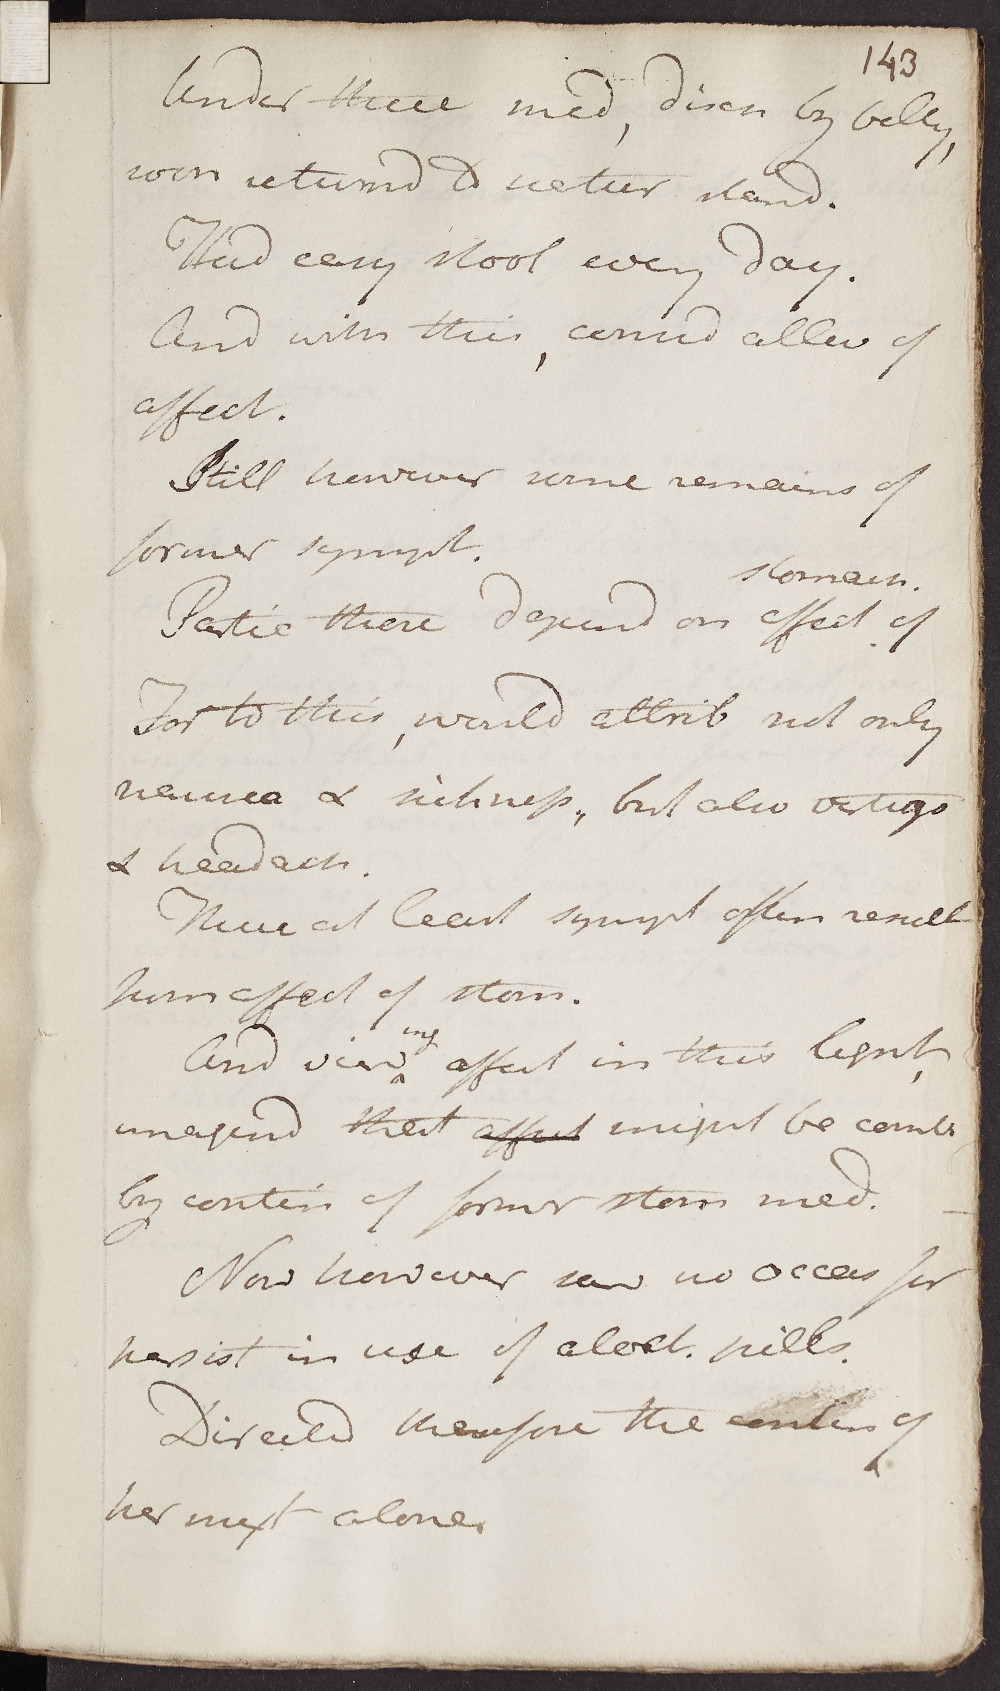 143
Under these med, disch by belly,
soon returnd to natur stand.
Had easy stool every day.
And with this, considd allev of
affect.
Still however some remains of
former sympt.
stomach.
Partic these depend on affect of
For to this, would attrib not only
nausea & sickness, but also vertigo
& headach.
These at least sympt often result
from affect of stom.
And viewing affect in this light,
imagind that affect might be comb
by contin of former stom med.
Now however saw no occas for
persist in use of aloet. pills.
Directed therefore the contin of
her mixt alone.